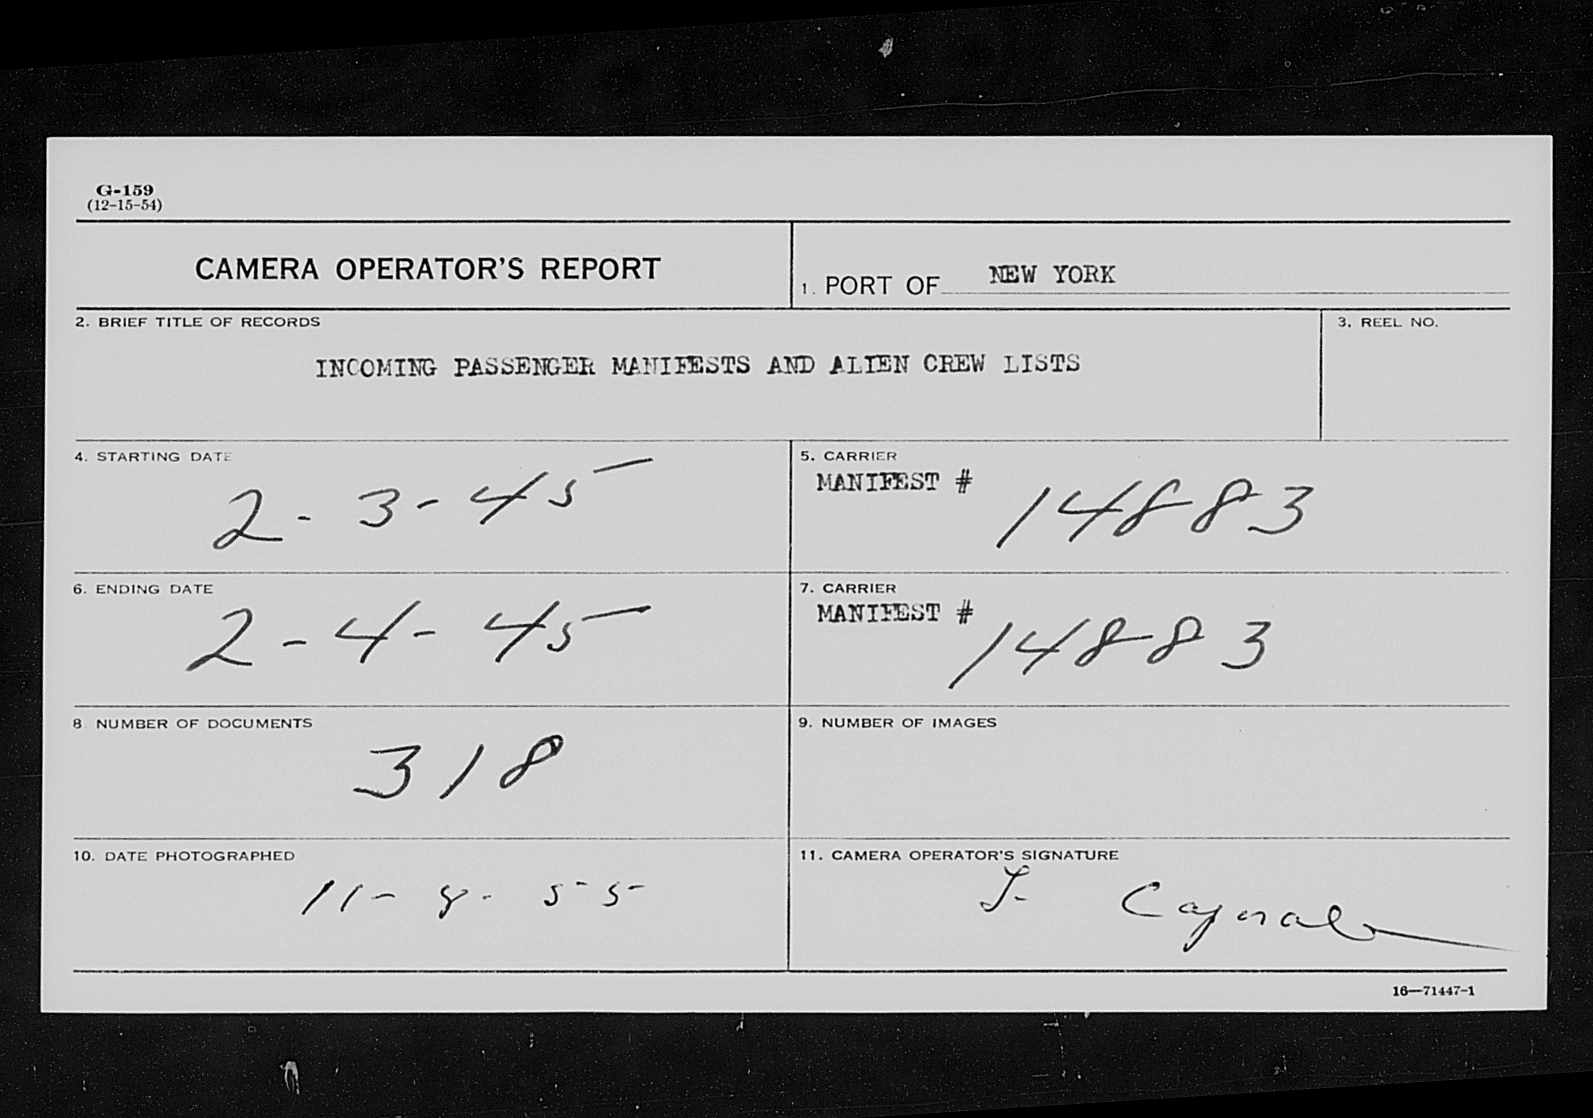 G-159
(12-15-54)
CAMERA OPERATOR'S REPORT
1. PORT OF NEW YORK
2. BRIEF TITLE OF RECORDS
INCOMING PASSENGER MANIFESTS AND ALIEN CREW LISTS
3. REEL NO.
4. STARTING DATE
2-3-45
5. CARRIER
MANIFEST # 14883
6. ENDING DATE
2-4-45
7. CARRIER
MANIFEST # 14883
8 NUMBER OF DOCUMENTS
318
9. NUMBER OF IMAGES
10. DATE PHOTOGRAPHED
11-8-55
11. CAMERA OPERATOR'S SIGNATURE
16—71447-1